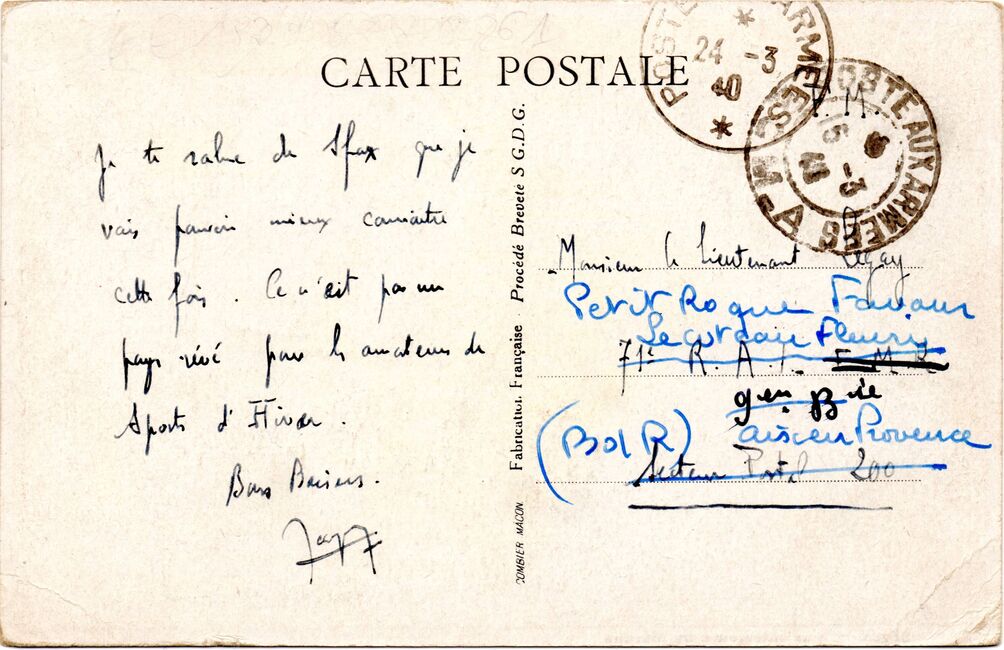 CARTE POSTALE
POSTE ARMEES
24 -3
40
POSTE AUX ARMEES
-3
Je te salue de Sfax que je
vais pouvoir mieux connaître
cette fois. Ce n'est pas un
pays rêvé pour les amateurs de
Sports d'Hiver.
Bons Baisers.
Fabrication Française - Procédé Breveté S.G.D.G.
COMBIER MACON
Monsieur le Lieutenant
Petit Roque Favour
Fleury
71e R. A.
gen. Bie
(BdR) aix en Provence
Secteur Postal 200